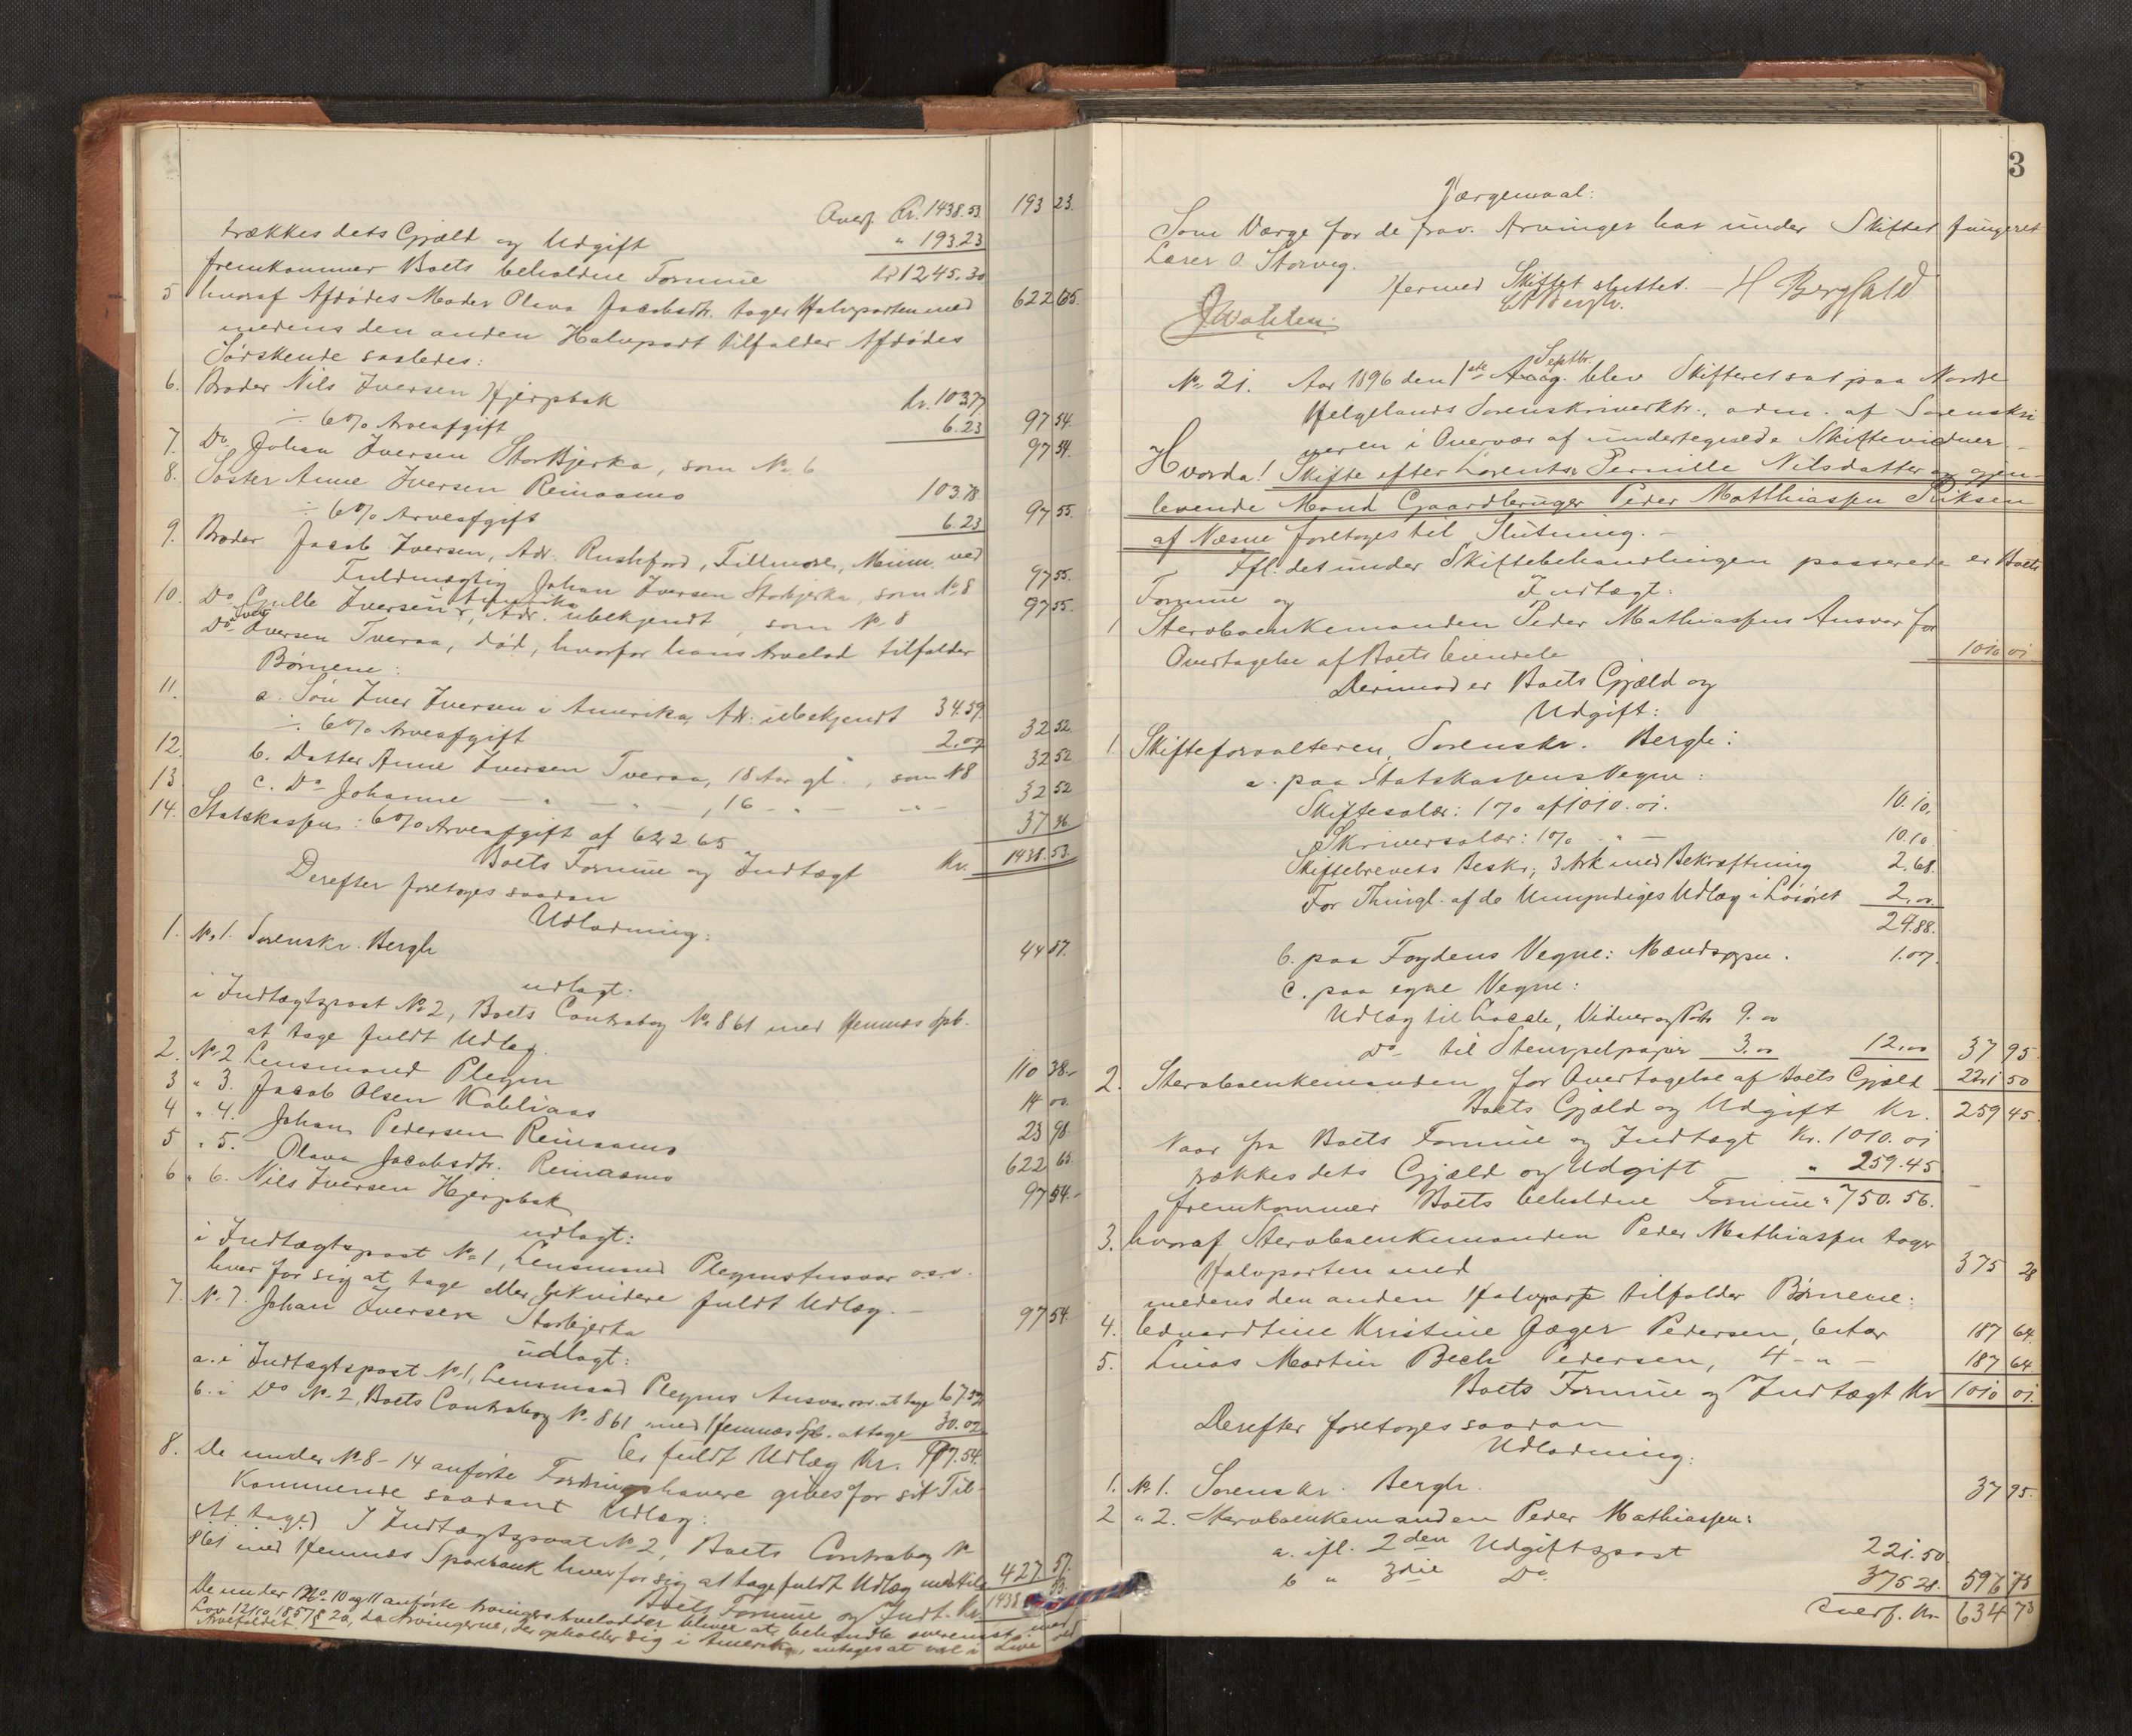 Overf. Kr. 1438.53. 193 23.
trækkes dets Gjæld og Udgift " 193.23
fremkommer Boets beholdne Formue kr 1245.30
5 hvoraf Afdødes Moder Olava Jacobsdtr. tager Halvparten med 622 65.
medens den anden Halvpart tilfalder Afdødes
Södskende saaledes:
6. Broder Nils Iversen Hjerpbak kr. 103.77
÷ 6% Arveafgift 6.23 97 54.
7. Do Johan Iversen Storbjerka, som No 6 97 54.
8. Söster Anne Iversen Reinaamo 103.78
÷ 6% Arveafgift 6.23 97 55.
9. Broder Jacob Iversen, Adr. Rushford, Fillmore, Minn. ved
Fuldmægtig Johan Iversen Storbjerka, som No 8 97 55.
10. Do Gulle Iversen i Amerika, Adr. ubekjendt, som No 8 97 55.
Do Iver Iversen Tveraa, död, hvorfor hans Arvelod tilfalder
Börnene:
11. a. Sön Iver Iversen i Amerika, Adr. ubekjendt 34.59.
÷ 6% Arveafgift 2.07 32 52.
12. b. Datter Anne Iversen Tveraa, 18 Aar gl., som No 8 32 52
13. c. Do Johanne — " — " —, 16 — " — " — 32 52
14. Statskassen: 6% Arveafgift af 622.65 37 36.
Boets Formue og Indtægt Kr. 1438.53.
Derefter foretoges saadan
Udlodning:
1. No 1. Sorenskr. Bergh 44 87.
udlagt:
i Indtægtspost No 2, Boets Contrabog No 861 med Hemnæs Spb.
at tage fuldt Udlæg.
2. No 2 Lensmand Plegm 110 38.-
3 " 3. Jacob Olsen Kobliaas 14 00.
4 " 4. Johan Pedersen Reinaamo 23 98
5 " 5. Olava Jacobsdtr. Reinaamo 622 65
6 " 6. Nils Iversen Hjerpbak 97 54.-
udlagt:
i Indtægtspost No 1, Lensmand Plegms Ansvar o.s.v.
hver for sig at tage eller likvidere fuldt Udlæg. —
7. No 7. Johan Iversen Storbjerka 97 54.
udlagt:
a. i Indtægtspost No 1, Lensmand Plegms Ansvar osv. at tage 67.52
b. i Do No 2, Boets Contrabog No 861 med Hemnæs Spb. at tage 30.02
Er fuldt Udlæg Kr. 97.54.
8. De under No 8-14 anförte Fordringshavere gives for sit Til-
kommende saadant Udlæg:
(At tage) I Indtægtspost No 2, Boets Contrabog No
861 med Hemnæs Sparebank hver for sig at tage fuldt Udlæg med tils. 427 57.
Boets Formue og Indt. Kr. 1438 53.
De under No 10 og 11 anförte Arvingers Arvelodder bliver at behandle overensst. med
Lov 12/10 1857 § 20, da Arvingerne, der opholder sig i Amerika, antages at være i Live ved
Arvefaldet.
3
Værgemaal:
Som Værge for de frav. Arvinger har under Skiftet fungeret
Lærer O. Storveg.
Hermed Skiftet sluttet. — H Bergfald
C P Bergh.
No 21. Aar 1896 den 1ste Aug. Septbr. blev Skifteret sat paa Nordre
Helgelands Sorenskriverktr., adm. af Sorenskri
veren i Overvær af undertegnede Skiftevidner —
Hvorda! Skifte efter Lorentse Pernille Nilsdatter og gjen-
levende Mand Gaardbruger Peder Matthiassen
af Næsne foretoges til Slutning. —
Ifl. det under Skiftebehandlingen passerede er Boets
Formue og Indtægt:
1 Sterboenkemanden Peder Mathiassens Ansvar for
Overtagelse af Boets Eiendele 1010 01
Derimod er Boets Gjæld og
Udgift:
1 Skifteforvalteren, Sorenskr. Bergh:
a. paa Statskassens Vegne:
Skiftesalær: 1% af 1010.01. 10.10.
Skriversalær: 1% — " — 10.10.
Skiftebrevets Beskr., 3 Ark med Bekræftning 2.68.
For Thingl. af de Umyndiges Udlæg i Lösöret 2.00
24.88.
b. paa Fogdens Vegne: Mændsppn. 1.07.
c. paa egne Vegne:
Udlæg til Locale, Vidner og Prt. 9.00
Do til Stempelpapir 3.00 12.00 37 95.
2. Sterboenkemanden for Overtagelse af Boets Gjæld 221 50
Boets Gjæld og Udgift Kr. 259 45.
Naar fra Boets Formue og Indtægt Kr. 1010.01
trækkes dets Gjæld og Udgift " 259.45
fremkommer Boets beholdne Formue " 750.56.
3. hvoraf Sterboenkemanden Peder Mathiassen tager
Halvparten med 375 28
medens den anden Halvpart tilfalder Börnene:
4. Edvardtine Kristine Jæger Pedersen, 6 Aar 187 64
5. Linas Martin Bech Pedersen, 4 - " - 187 64
Boets Formue og Indtægt Kr 1010 01.
Derefter foretoges saadan
Udlodning:
1. No 1. Sorenskr. Bergh. 37 95.
2 " 2. Sterboenkemanden Peder Mathiassen:
a. ifl. 2den Udgiftspost 221.50
b " 3die Do 375.28. 596 78
Overf. Kr 634 73